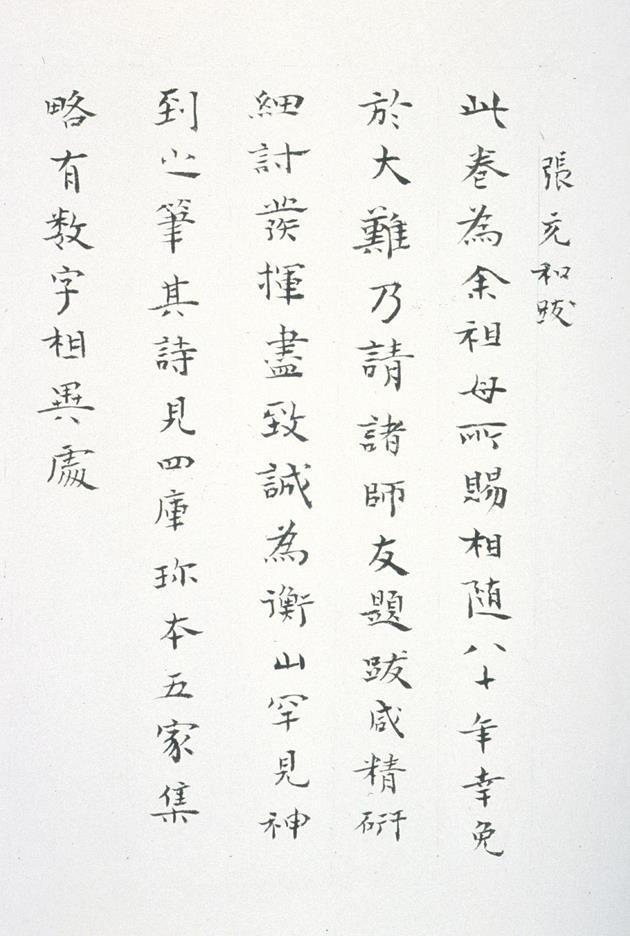 張充和跋
此卷為余祖母所賜相随八十年幸免
於大難乃請諸師友題跋咸精研
細討發揮盡致誠為衡山罕見神
到之筆其詩見四庫珎本五家集
略有数字相異處